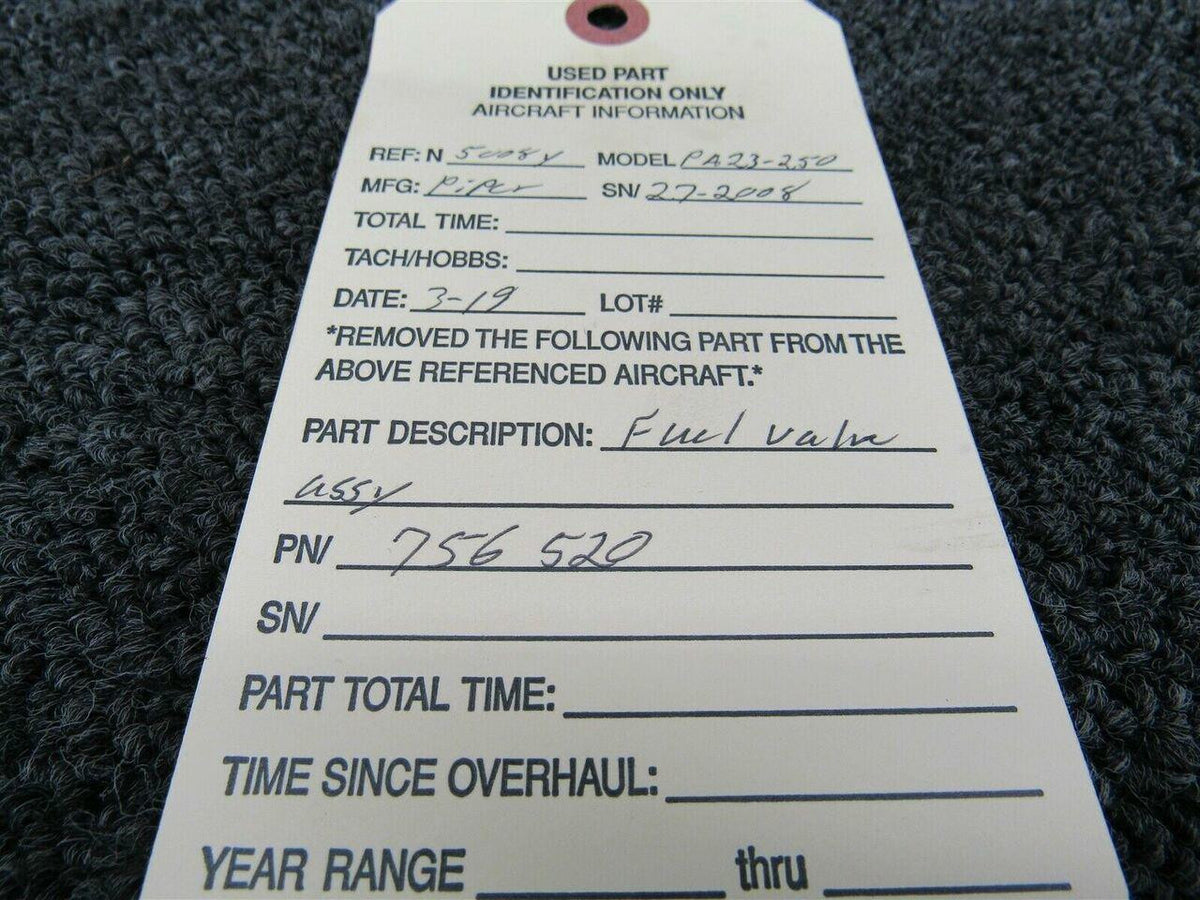 USED PART
IDENTIFICATION ONLY
AIRCRAFT INFORMATION
REF: N 5008Y MODEL PA23-250
MFG: Piper SN/ 27-2008
TOTAL TIME:
TACH/HOBBS:
DATE: 3-19 LOT#
*REMOVED THE FOLLOWING PART FROM THE
ABOVE REFERENCED AIRCRAFT.*
PART DESCRIPTION: Fuel valve
assy
PN/ 756 520
SN/
PART TOTAL TIME:
TIME SINCE OVERHAUL:
YEAR RANGE thru